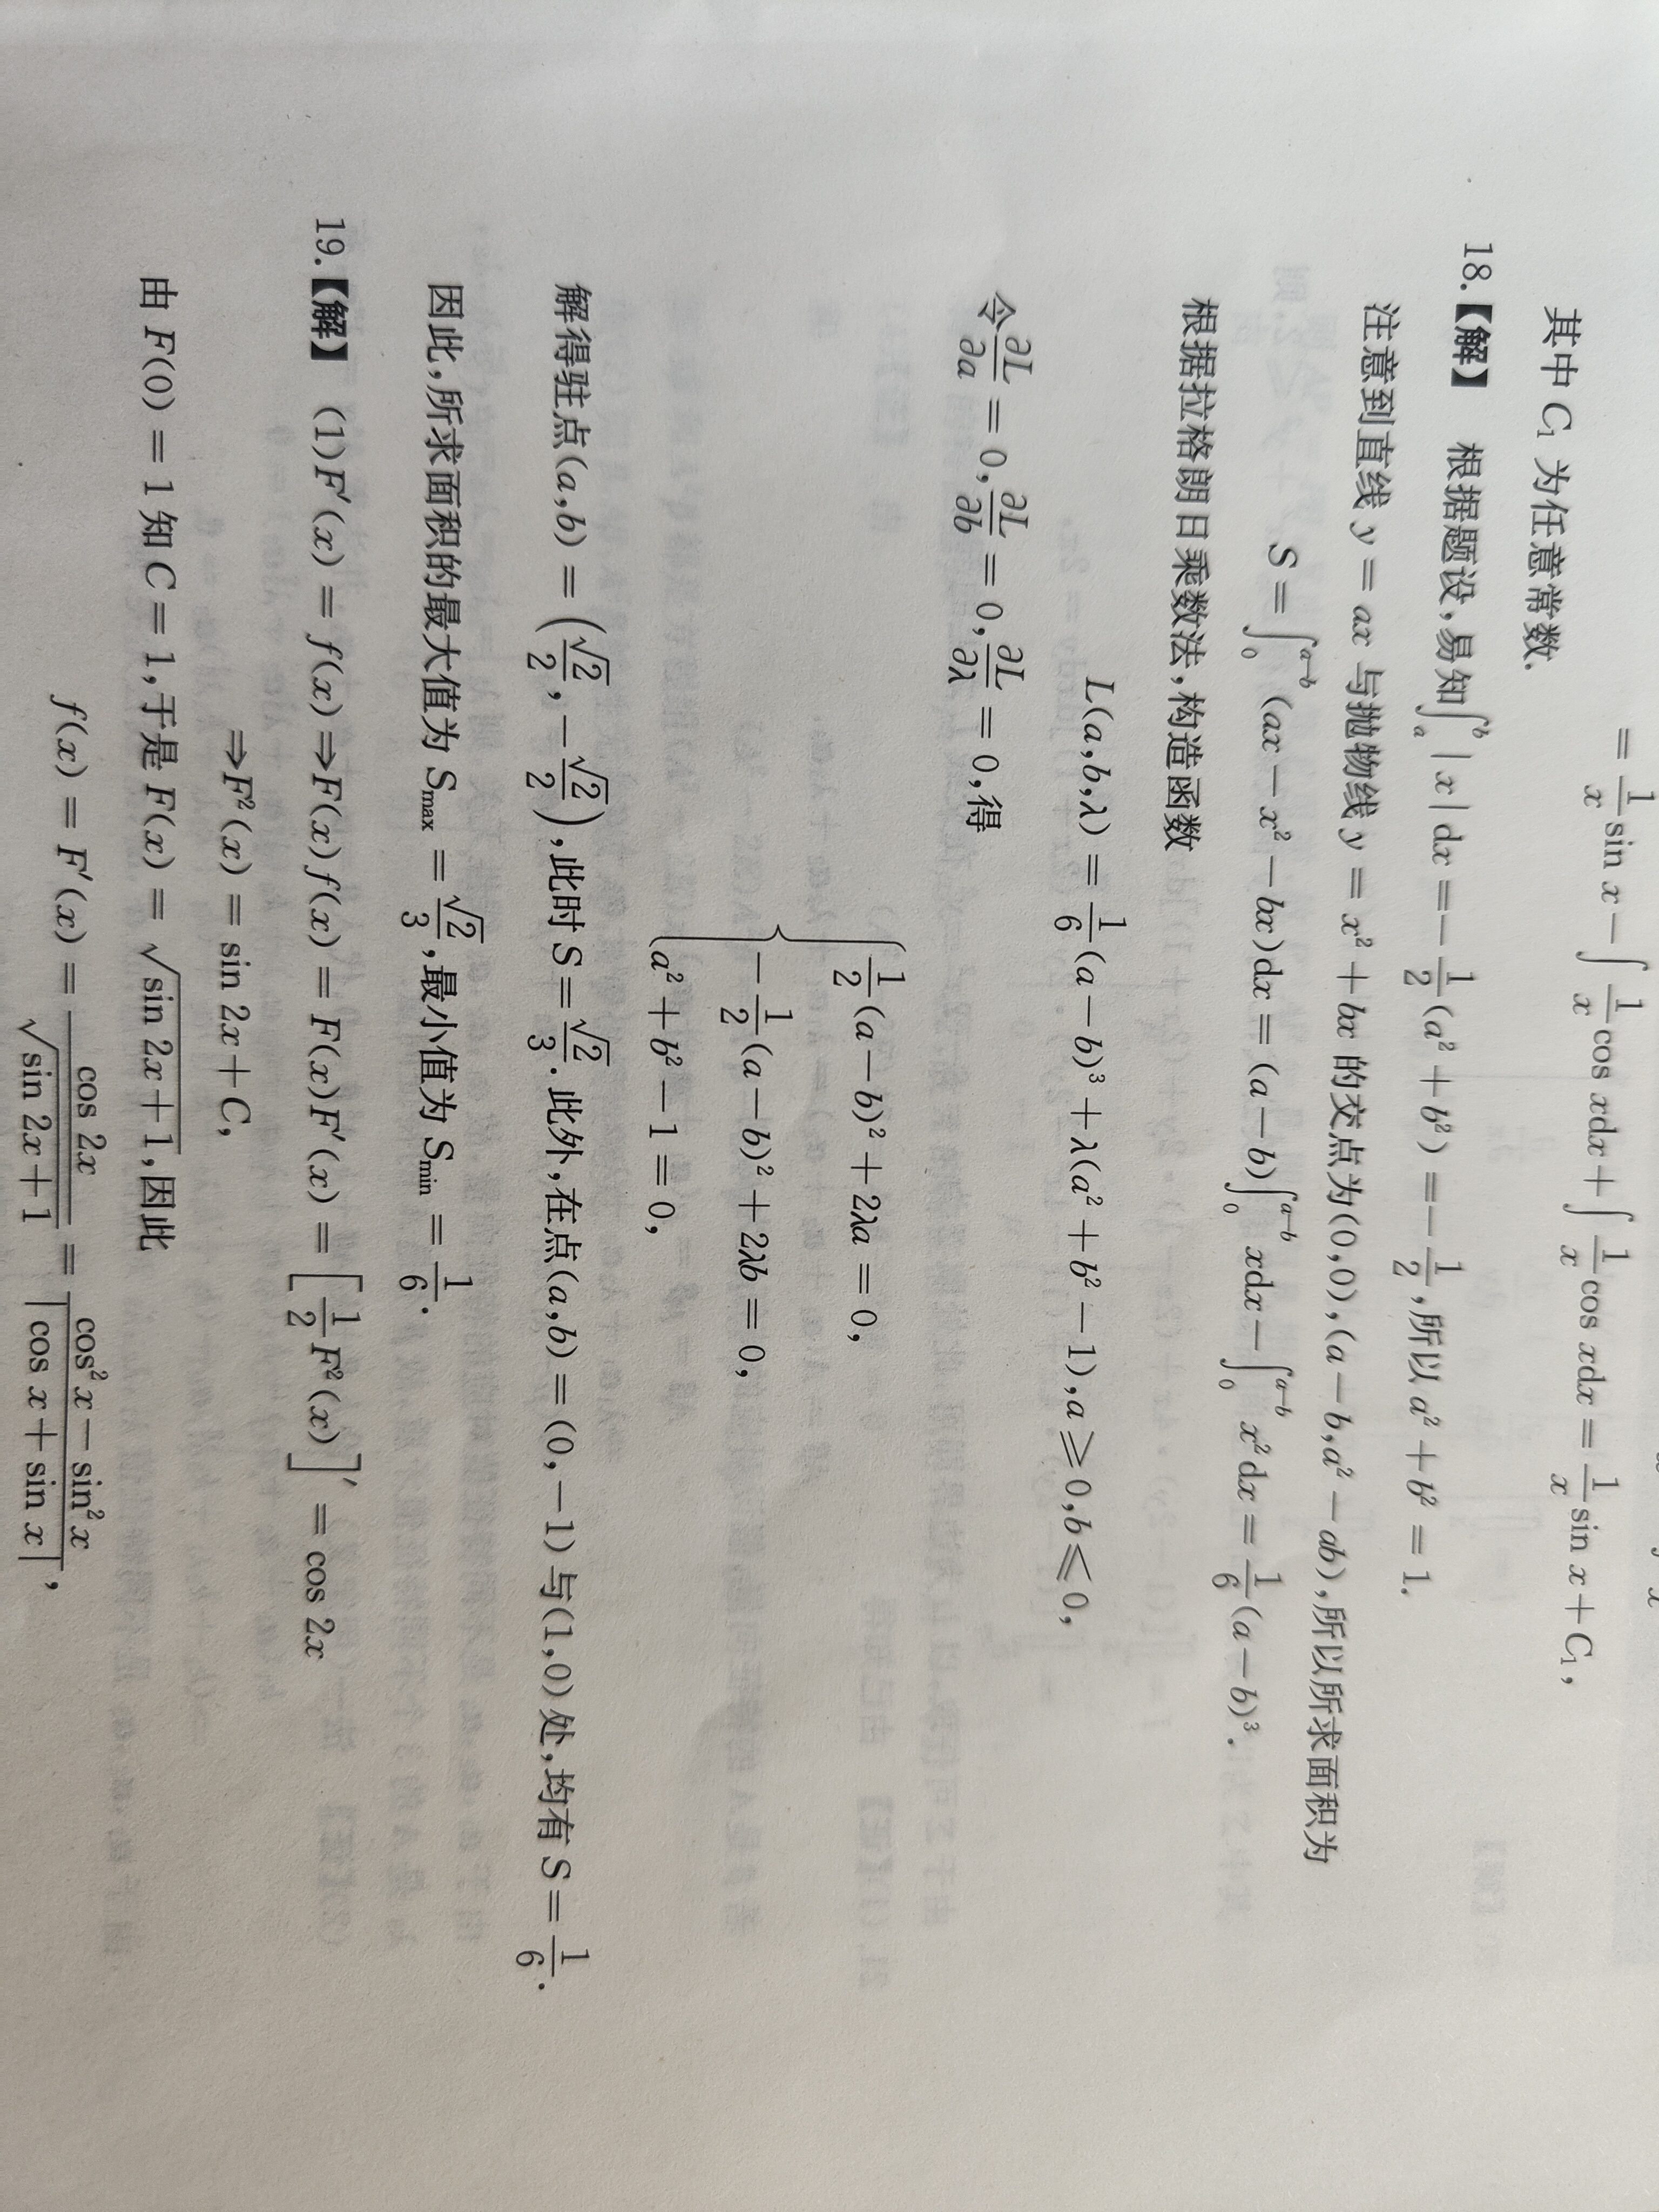 = 1/x sin x − ∫ 1/x cos xdx + ∫ 1/x cos xdx = 1/x sin x + C₁,
其中 C₁ 为任意常数.
18.【解】 根据题设,易知∫ₐᵇ | x | dx =− 1/2 (a² + b²) =− 1/2,所以 a² + b² = 1.
注意到直线 y = ax 与抛物线 y = x² + bx 的交点为(0,0),(a − b,a² − ab),所以所求面积为
S = ∫₀ᵃ⁻ᵇ (ax − x² − bx)dx = (a − b)∫₀ᵃ⁻ᵇ xdx − ∫₀ᵃ⁻ᵇ x²dx = 1/6 (a − b)³.
根据拉格朗日乘数法,构造函数
L(a,b,λ) = 1/6 (a − b)³ + λ(a² + b² − 1),a ⩾ 0,b ⩽ 0,
令 ∂L/∂a = 0, ∂L/∂b = 0, ∂L/∂λ = 0,得
{ 1/2 (a − b)² + 2λa = 0,
− 1/2 (a − b)² + 2λb = 0,
a² + b² − 1 = 0,
解得驻点(a,b) = (√2/2, −√2/2),此时 S = √2/3. 此外,在点(a,b) = (0,−1)与(1,0)处,均有 S = 1/6.
因此,所求面积的最大值为 Sₘₐₓ = √2/3,最小值为 Sₘᵢₙ = 1/6.
19.【解】 (1)F′(x) = f(x) ⇒ F(x)f(x) = F(x)F′(x) = [1/2 F²(x)]′ = cos 2x
⇒ F²(x) = sin 2x + C,
由 F(0) = 1 知 C = 1,于是 F(x) = √(sin 2x + 1),因此
f(x) = F′(x) = cos 2x/√(sin 2x + 1) = (cos²x − sin²x)/|cos x + sin x|,